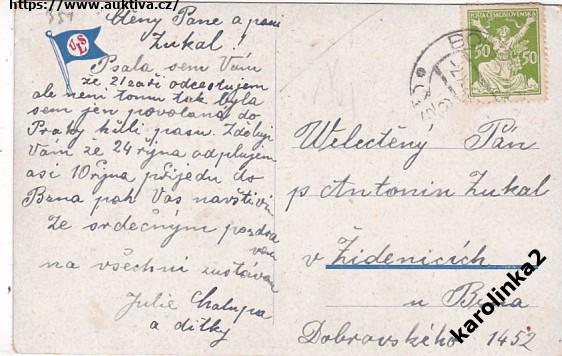 https://www.auktiva.cz/
351
Ctěny Pane a paní
Zukal!
ULS
Psala sem Vám
ze 21 zaři odcestujem
ale neni tomu tak byla
sem jen povolana do
Prahy kůli pasu. Zděluji
Vám ze 24 října odplujem
asi 10 října přijedu do
Brna pak Vas navštivim
Ze srdečným pozdra
vem
na všechni zustávam
Julie Chalupa
a ditky
POŠTA ČESKOSLOVENSKÁ
50 50
Welectěný Pán
p Antonin Zukal
v Židenicích
u Brna
Dobrovského 1452
karolinka2